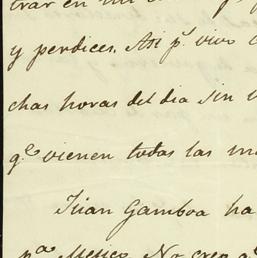 trar en mi
y perdices. Asi p.r vivo
chas horas del dia sin
q.e vienen todas las
Juan Gamboa ha
p.a Mexico. No creo q.e